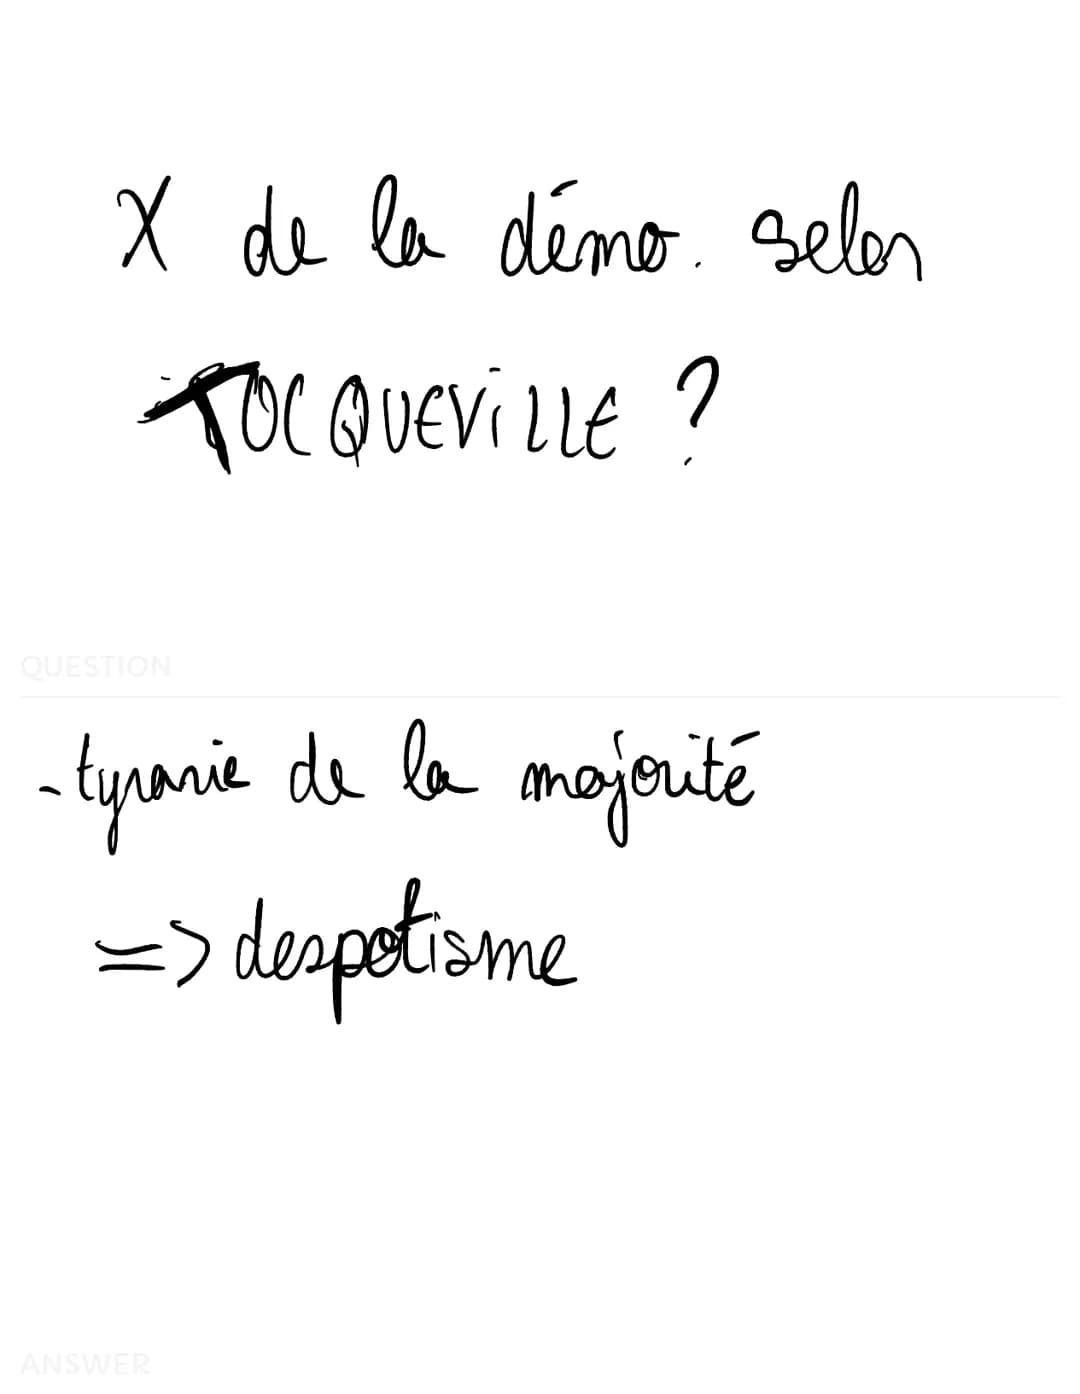 X de la démo. selon
TOCQUEVILLE ?
QUESTION
- tyranie de la majorité
=> despotisme
ANSWER